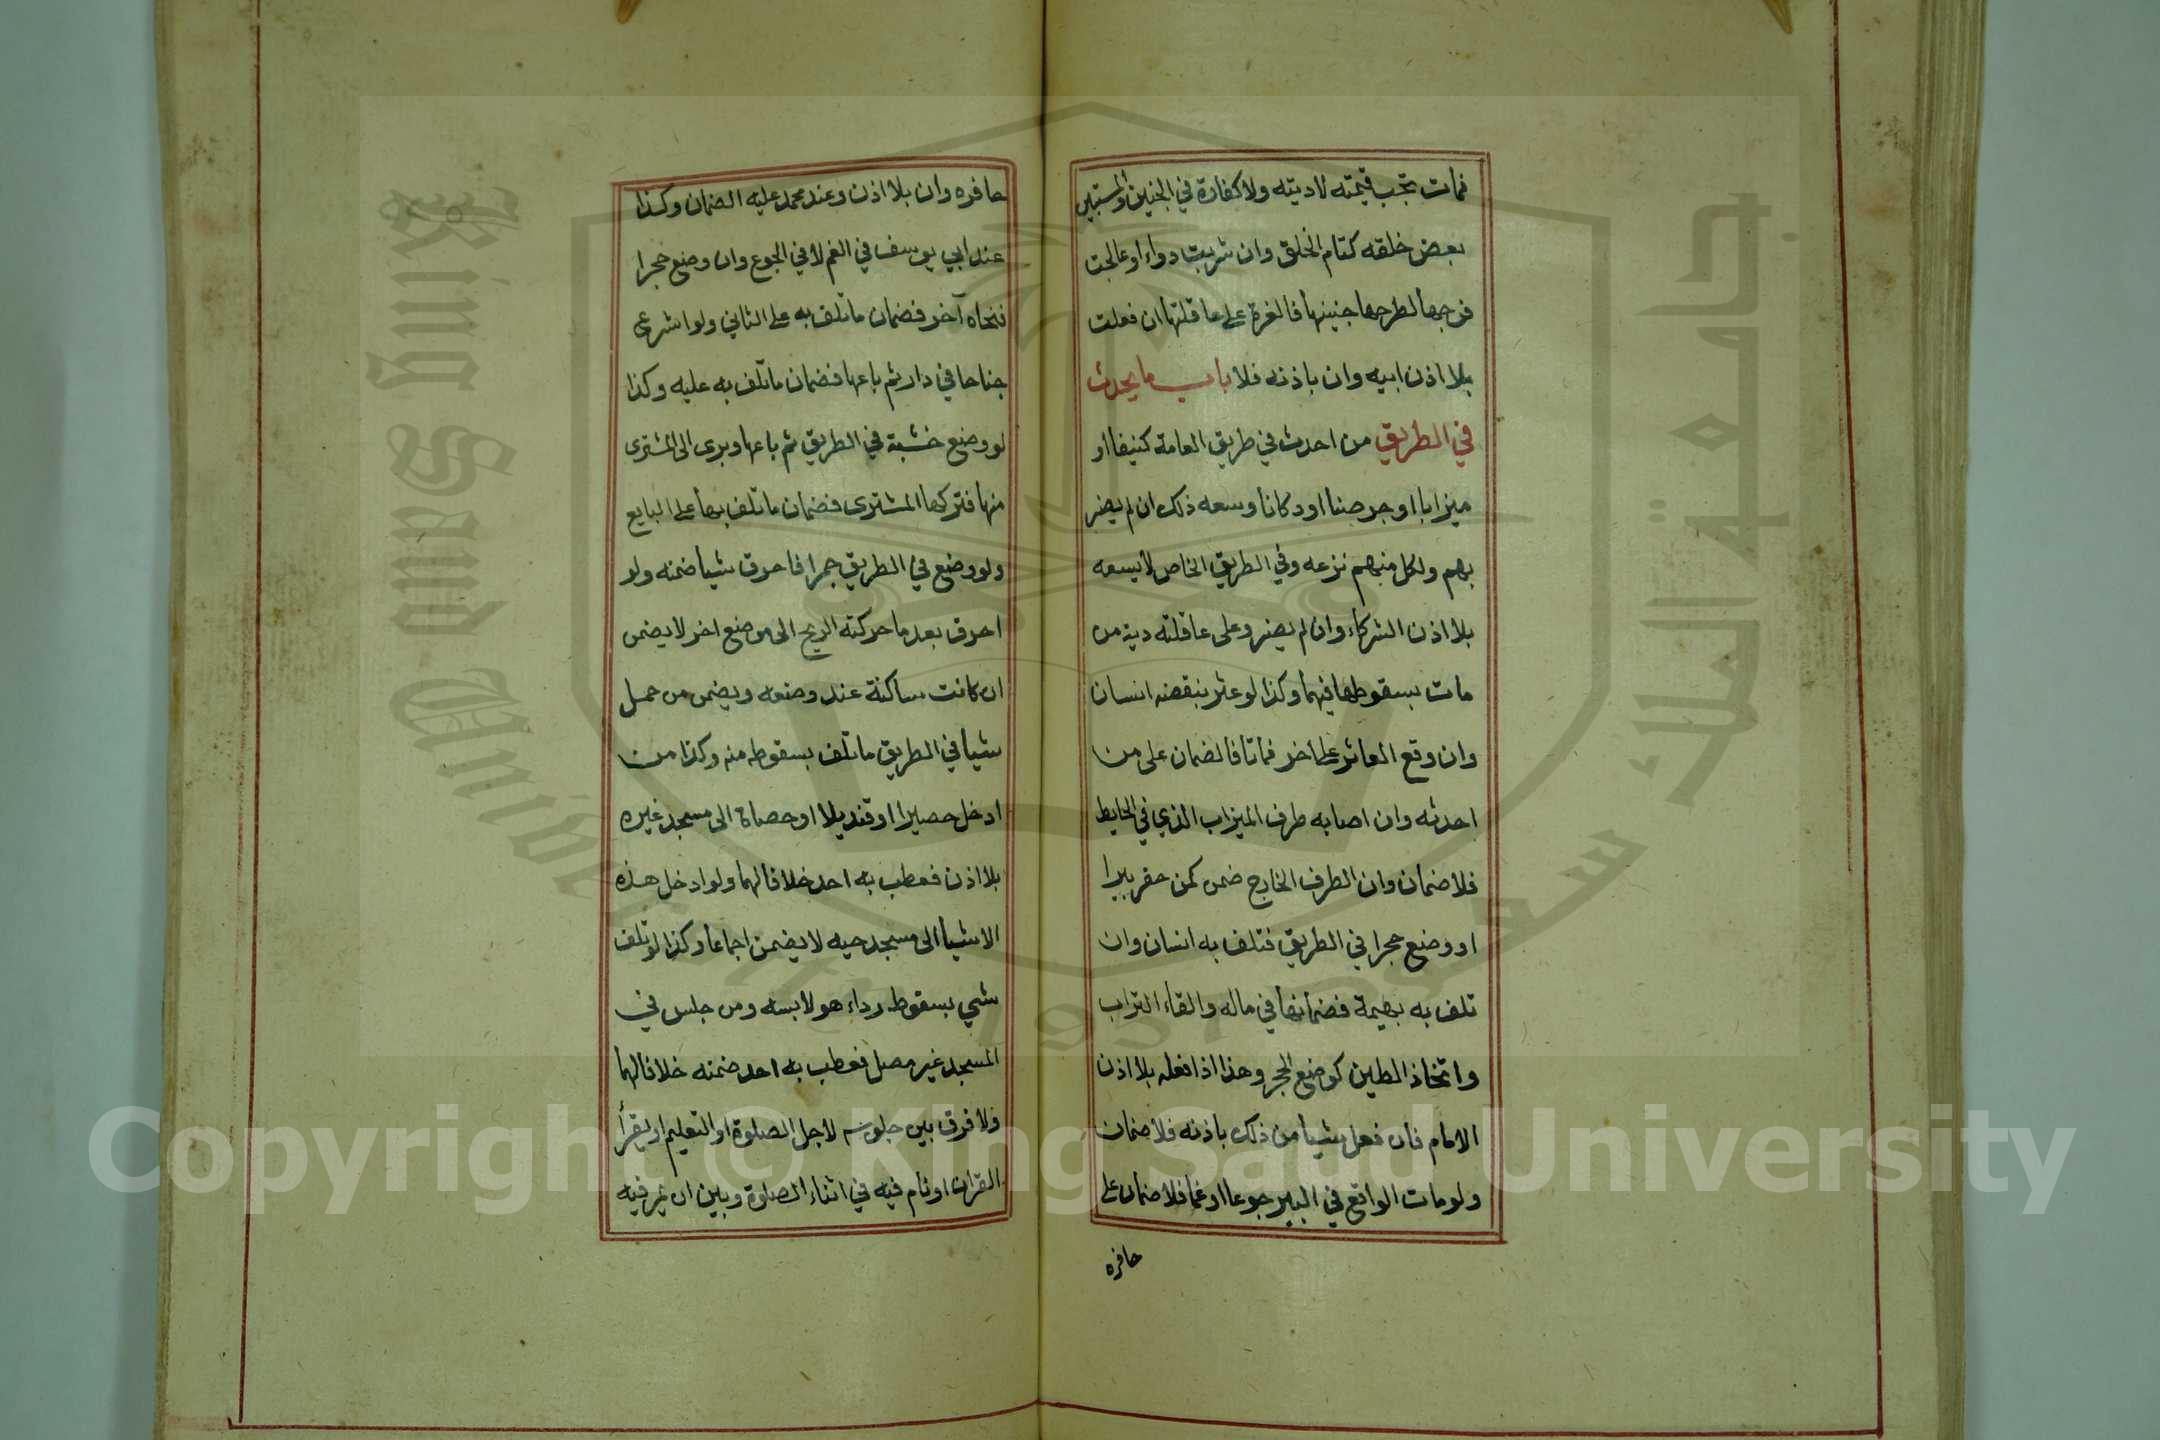 فمات تجب قيمته لا ديته ولا كفارة في الجنين والمستبين
بعض خلقه كتام الخلق وان شربت دواء او عالجت
فرجها لطرحها جنينها فالغرة على عاقلتها ان فعلت
بلا اذن ابيه وان باذنه فلا باب ما يحدث
في الطريق من احدث في طريق العامة كنيفا او
ميزابا او جرصنا او دكانا وسعه ذلك ان لم يضر
بهم ولكل منهم نزعه وفي الطريق الخاص لا يسعه
بلا اذن الشركاء وان لم يضر وعلى عاقلته دية من
مات بسقوطها فيهما وكذا لو عثر بنقضه انسان
وان وقع العاثر على اخر فماتا فالضمان على من
احدثه وان اصابه طرف الميزاب الذي في الحايط
فلا ضمان وان الطرف الخارج ضمن كمن حفر بيرا
او وضع حجرا في الطريق فتلف به انسان وان
تلف به بهيمة فضمانها في ماله والقاء التراب
واتخاذ الطين كوضع الحجر وهذا اذا فعله بلا اذن
الامام فان فعل شيأ من ذلك باذنه فلا ضمان
ولو مات الواقع في البير جوعا او غما فلا ضمان على
حافره
حافره وان بلا اذن وعند محمد عليه الضمان وكذا
عند ابي يوسف في الغم لا في الجوع وان وضع حجرا
فنحاه آخر فضمان ما تلف به على الثاني ولو اشرع
جناحا في دار ثم باعها فضمان ما تلف به عليه وكذا
لو وضع خشبة في الطريق ثم باعها وبرى الى المشترى
منها فتركها المشترى فضمان ما تلف بها على البايع
ولو وضع في الطريق جمرا فاحرق شيأ ضمنه ولو
احرق بعد ما حركته الريح الى موضع اخر لا يضمن
ان كانت ساكنة عند وضعه ويضمن من حمل
شيأ في الطريق ما تلف بسقوطه منه وكذا من
ادخل حصيرا او قنديلا او حصاة الى مسجد غيره
بلا اذن فعطب به احد خلافا لهما ولو ادخل هذه
الاشيأ الى مسجد حيه لا يضمن اجماعا وكذا لو تلف
شي بسقوط رداء هو لابسه ومن جلس في
المسجد غير مصل فعطب به احد ضمنه خلافا لهما
ولا فرق بين جلوسه لاجل الصلوة او التعليم او يقرأ
القران او نام فيه في اثناء الصلوة وبين ان يمر فيه
King Saud University
جامعة الملك سعود
1957
Copyright © King Saud University